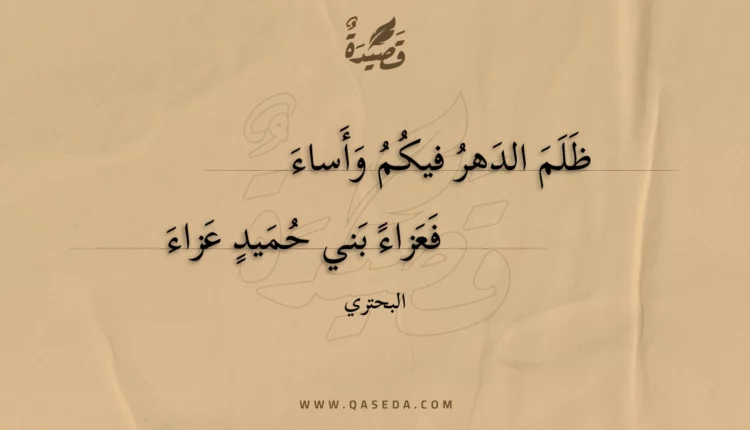 قَصِيْدَةٌ
ظَلَمَ الدَهرُ فيكُمُ وَأَساءَ
فَعَزاءً بَني حُمَيدٍ عَزاءَ
البحتري
WWW.QASEDA.COM